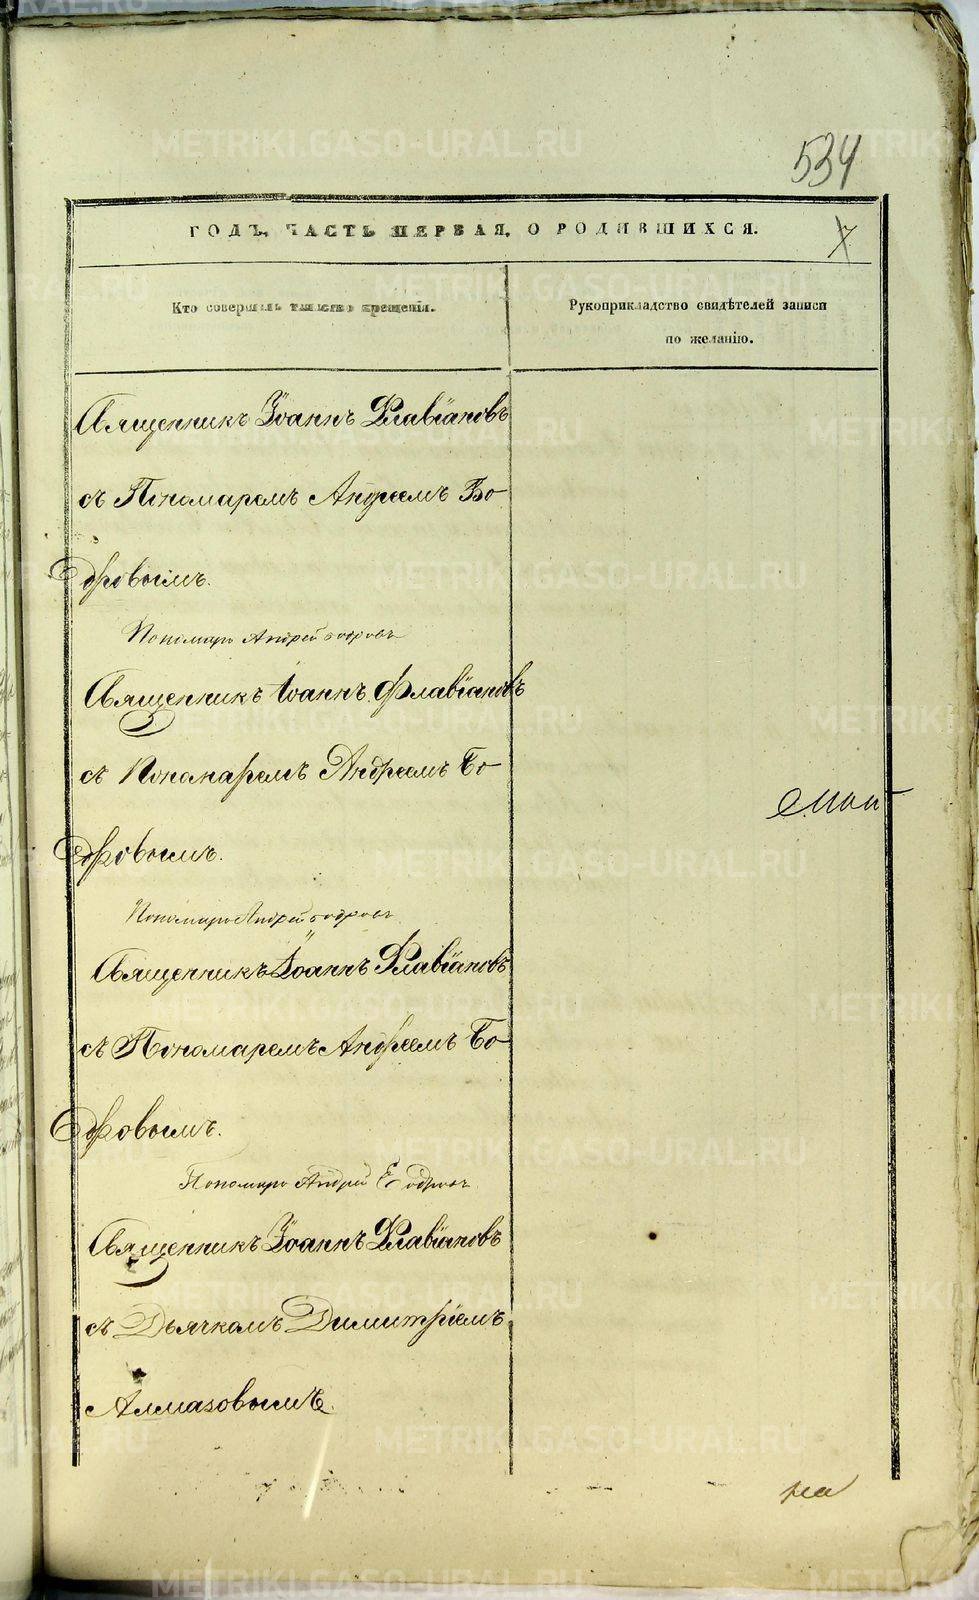 534
ГОДЪ, ЧАСТЬ ПЕРВАЯ, О РОДИВШИХСЯ.
7
Кто совершалъ таинство крещенія.
Рукоприкладство свидѣтелей записи
по желанію.
Священникъ Іоаннъ Флавіановъ
съ Пономаремъ Андреемъ Бо-
дровымъ.
Пономарь Андрей бодровъ
Священникъ Іоаннъ Флавіановъ
съ Пономаремъ Андреемъ Бо-
дровымъ.
Пономарь Андрей бодровъ
Священникъ Іоаннъ Флавіановъ
съ Пономаремъ Андреемъ Бо-
дровымъ.
Пономарь Андрей Бодровъ
Священникъ Іоаннъ Флавіановъ
съ Дьячкомъ Димитріемъ
Алмазовымъ.
METRIKI.GASO-URAL.RU